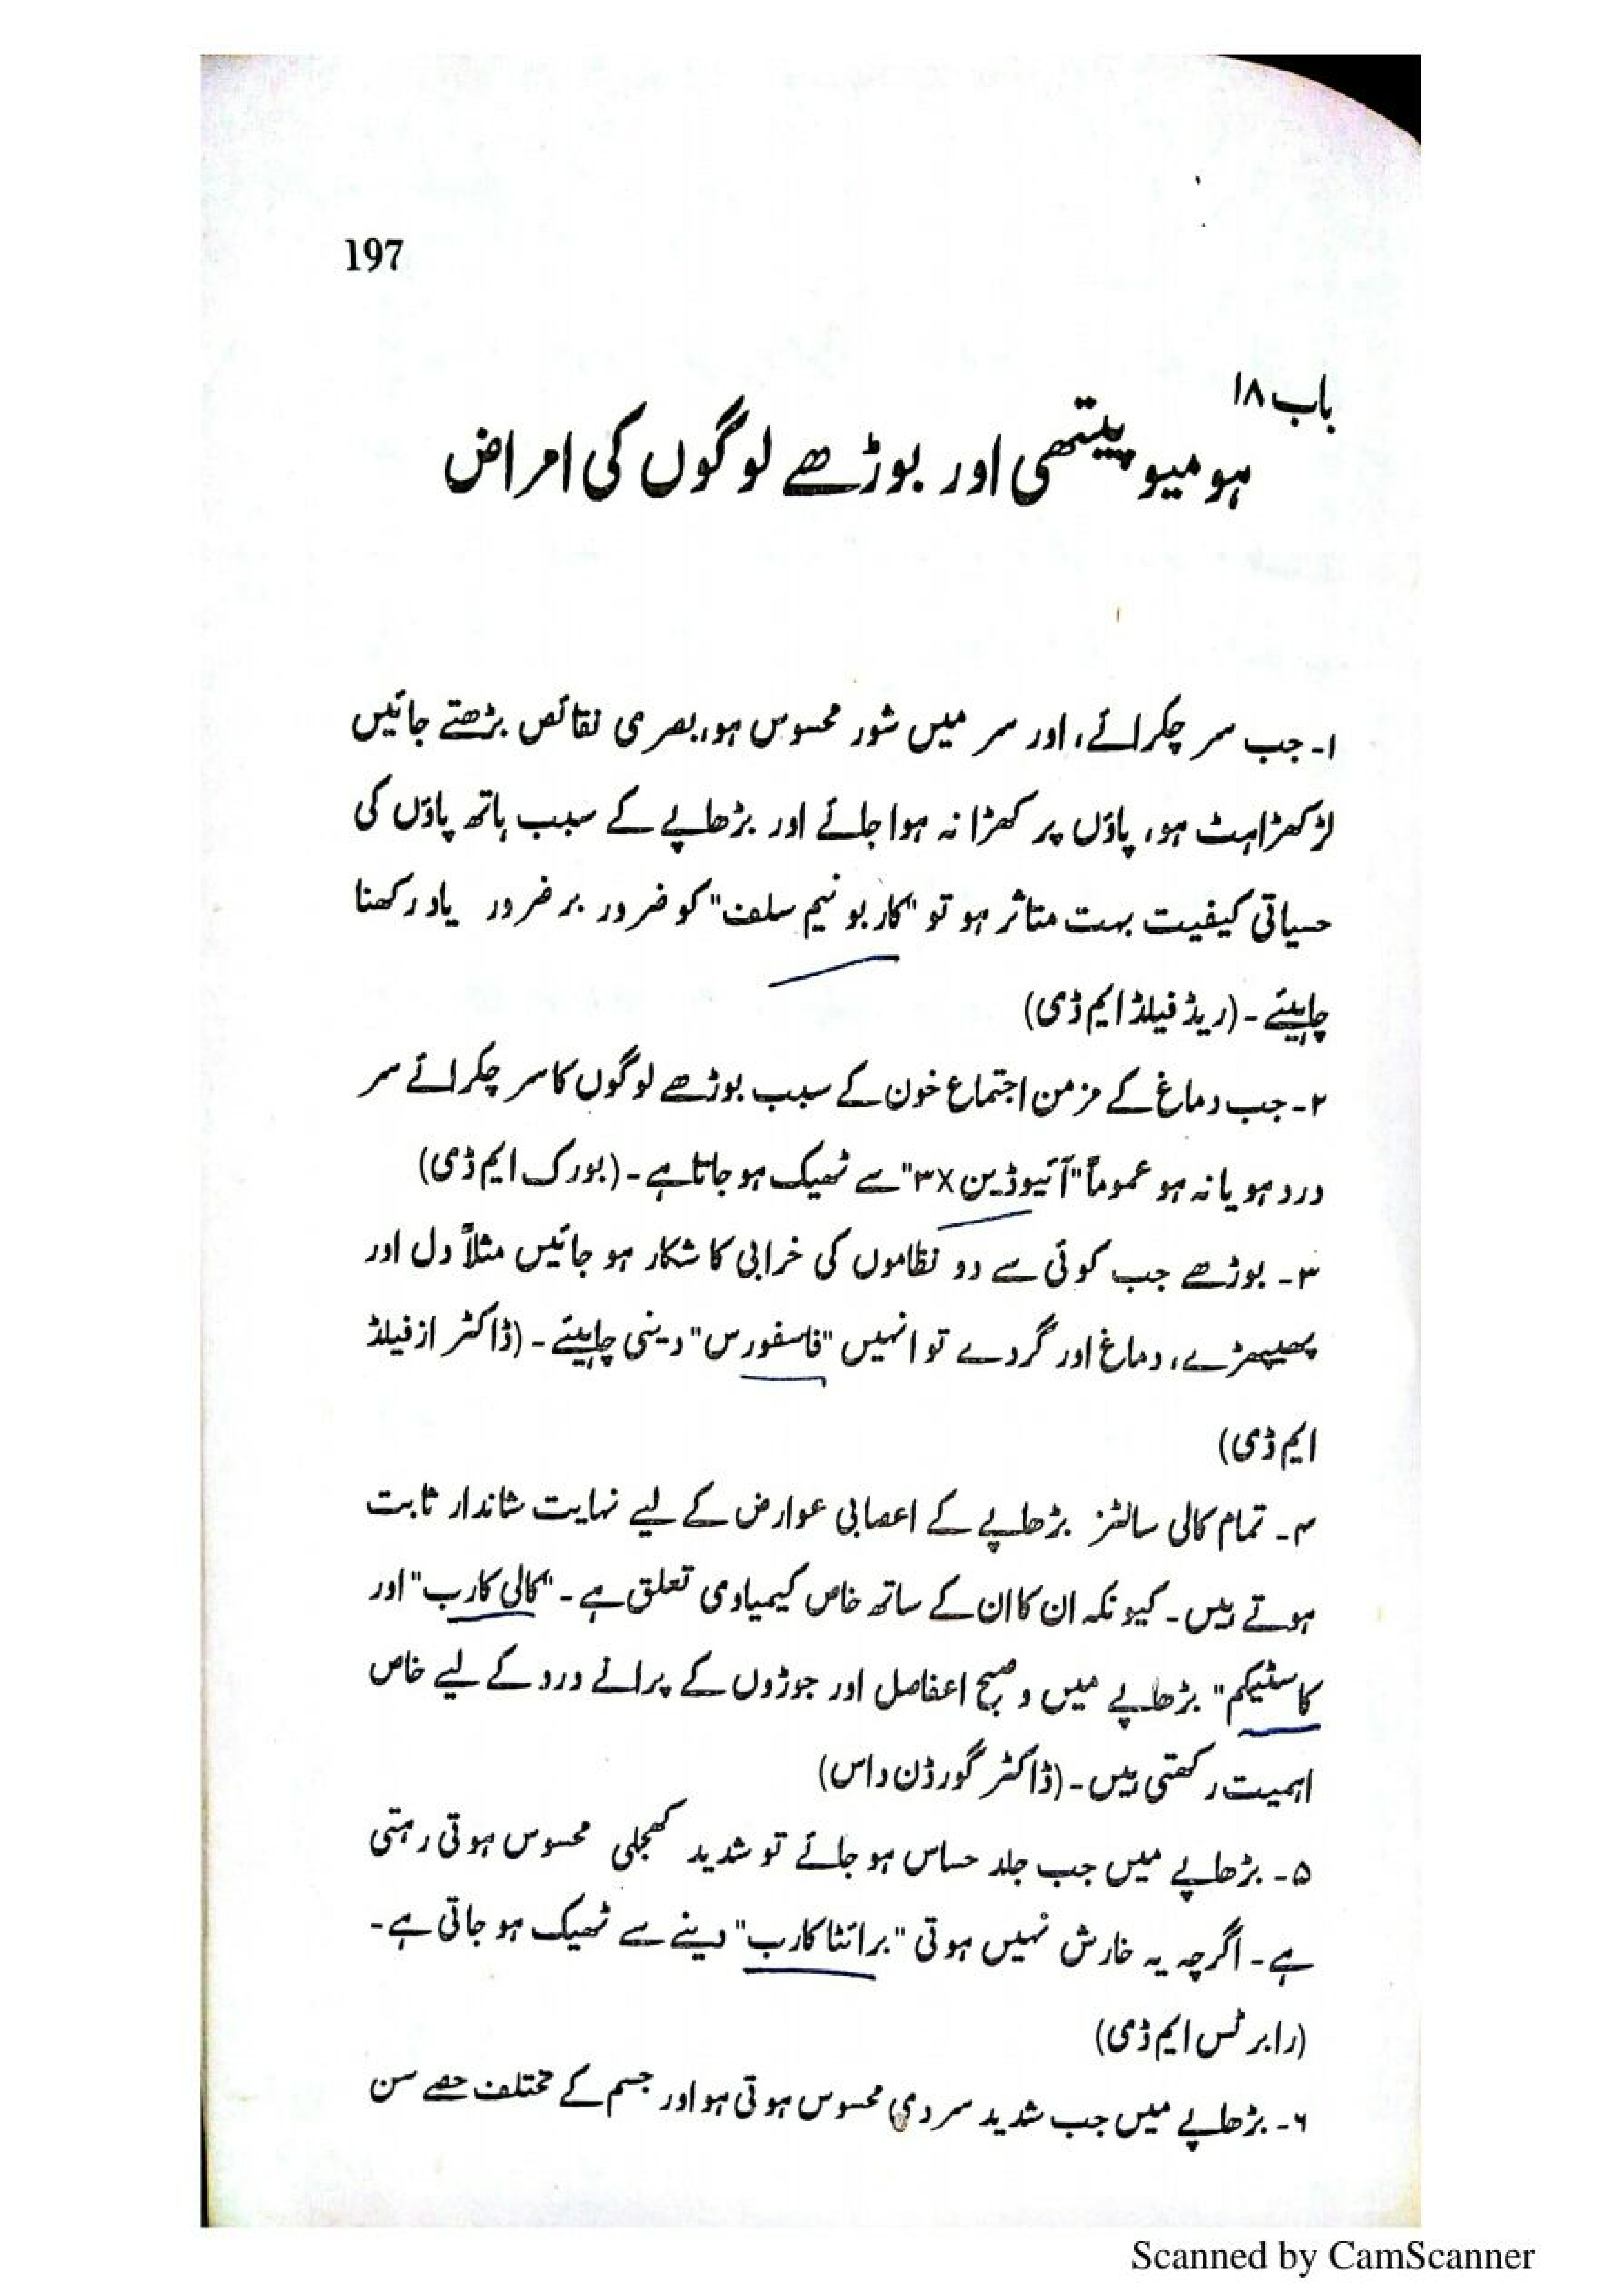 197
باب ۱۸
ہومیوپیتھی اور بوڑھے لوگوں کی امراض
۱۔ جب سر چکرائے، اور سر میں شور محسوس ہو، بصری نقائص بڑھتے جائیں
لڑکھڑاہٹ ہو، پاؤں پر کھڑا نہ ہوا جائے اور بڑھاپے کے سبب ہاتھ پاؤں کی
حسیاتی کیفیت بہت متاثر ہو تو "کاربونیم سلف" کو ضرور بر ضرور یاد رکھنا
چاہیئے۔ (ریڈ فیلڈ ایم ڈی)
۲۔ جب دماغ کے مزمن اجتماع خون کے سبب بوڑھے لوگوں کا سر چکرائے سر
درد ہو یا نہ ہو عموماً "آئیوڈین ۳x" سے ٹھیک ہو جاتا ہے۔ (بورک ایم ڈی)
۳۔ بوڑھے جب کوئی سے دو نظاموں کی خرابی کا شکار ہو جائیں مثلاً دل اور
پھیپھڑے، دماغ اور گردے تو انہیں "فاسفورس" دینی چاہیئے۔ (ڈاکٹر از فیلڈ
ایم ڈی)
۴۔ تمام کالی سالٹز بڑھاپے کے اعصابی عوارض کے لیے نہایت شاندار ثابت
ہوتے ہیں۔ کیونکہ ان کا ان کے ساتھ خاص کیمیاوی تعلق ہے۔ "کالی کارب" اور
کاسٹیکم" بڑھاپے میں وصبح اعفاصل اور جوڑوں کے پرانے درد کے لیے خاص
اہمیت رکھتی ہیں۔ (ڈاکٹر گورڈن داس)
۵۔ بڑھاپے میں جب جلد حساس ہو جائے تو شدید کھجلی محسوس ہوتی رہتی
ہے۔ اگرچہ یہ خارش نہیں ہوتی "برائٹا کارب" دینے سے ٹھیک ہو جاتی ہے۔
(رابرٹس ایم ڈی)
۶۔ بڑھاپے میں جب شدید سردی محسوس ہوتی ہو اور جسم کے مختلف حصے سن
Scanned by CamScanner